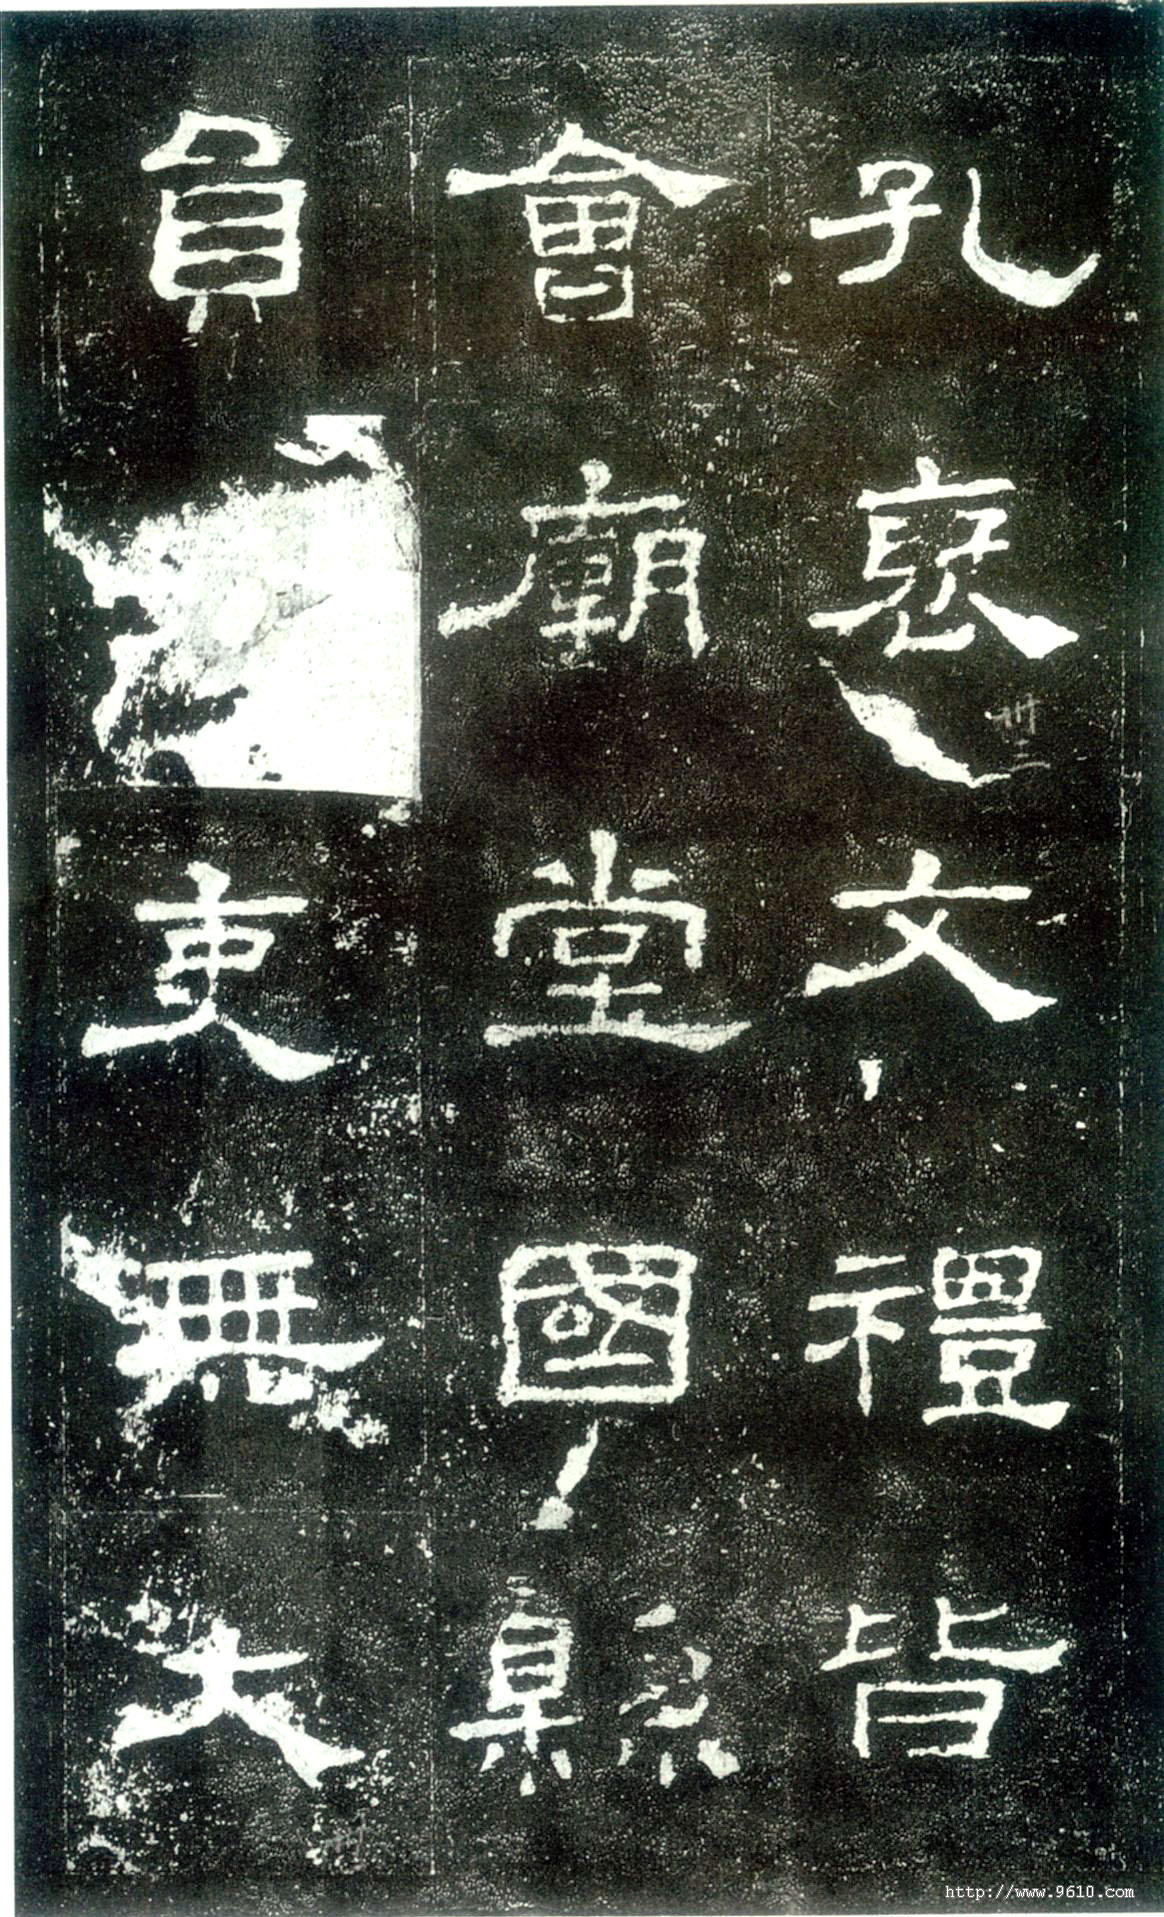 孔襃文禮皆
會廟堂國縣
員吏無大
http://www.9610.com